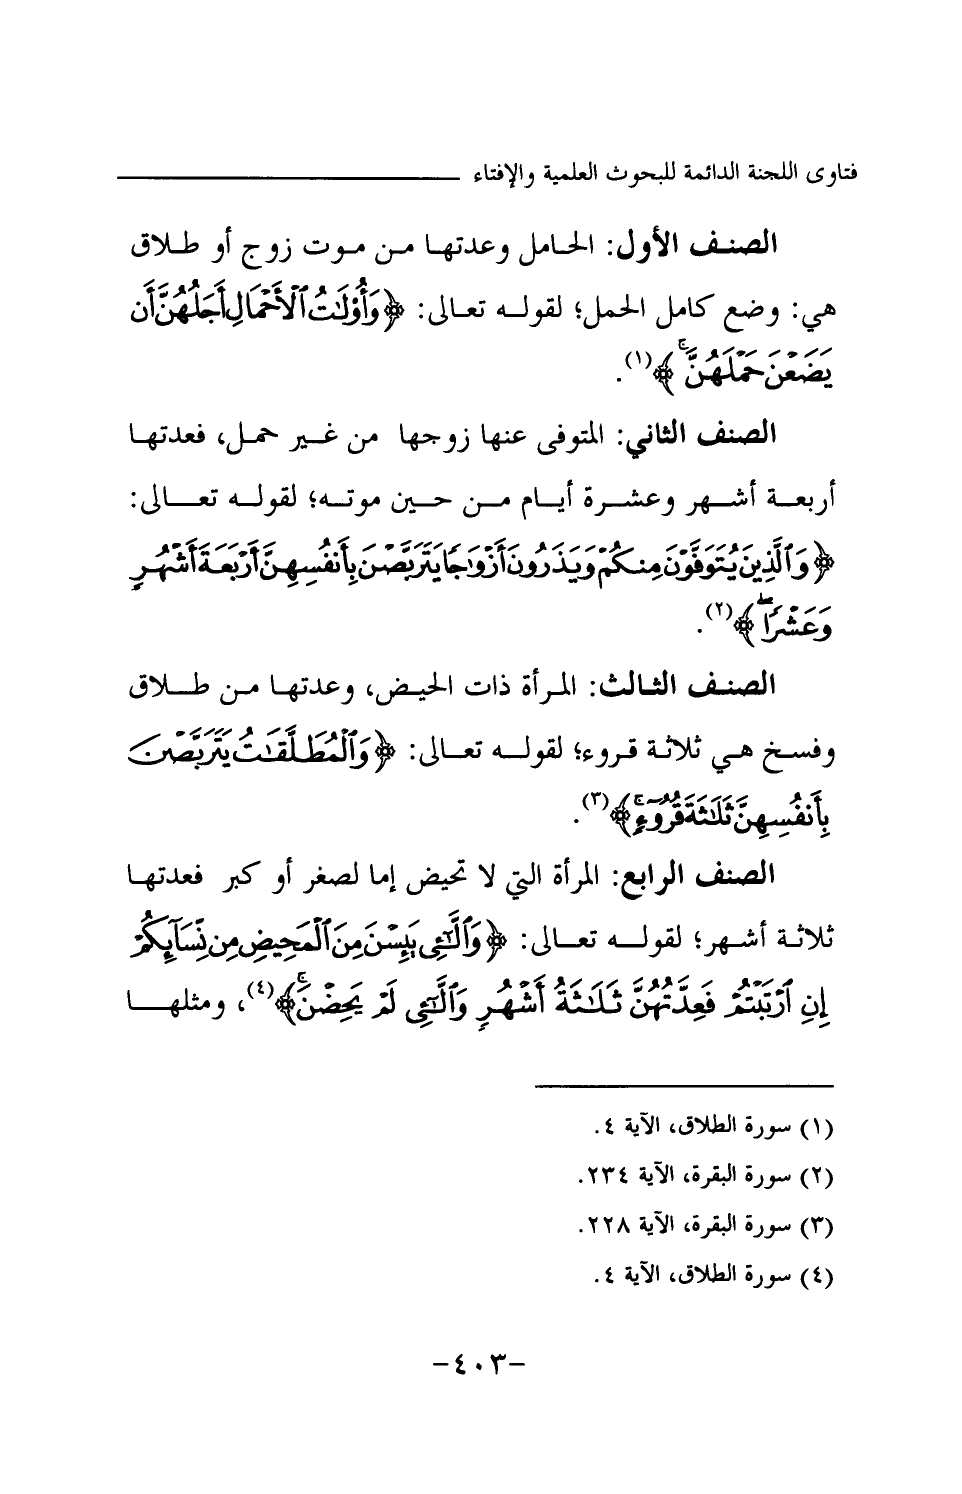 فتاوى اللجنة الدائمة للبحوث العلمية والإفتاء
الصنف الأول: الحامل وعدتها من موت زوج أو طلاق
هي: وضع كامل الحمل؛ لقوله تعالى: ﴿وَأُوْلَٰتُ ٱلۡأَحۡمَالِ أَجَلُهُنَّ أَن
يَضَعۡنَ حَمۡلَهُنَّۚ﴾(١).
الصنف الثاني: المتوفى عنها زوجها من غير حمل، فعدتها
أربعة أشهر وعشرة أيام من حين موته؛ لقوله تعالى:
﴿وَٱلَّذِينَ يُتَوَفَّوۡنَ مِنكُمۡ وَيَذَرُونَ أَزۡوَٰجٗا يَتَرَبَّصۡنَ بِأَنفُسِهِنَّ أَرۡبَعَةَ أَشۡهُرٖ
وَعَشۡرٗاۖ﴾(٢).
الصنف الثالث: المرأة ذات الحيض، وعدتها من طلاق
وفسخ هي ثلاثة قروء؛ لقوله تعالى: ﴿وَٱلۡمُطَلَّقَٰتُ يَتَرَبَّصۡنَ
بِأَنفُسِهِنَّ ثَلَٰثَةَ قُرُوٓءٖۚ﴾(٣).
الصنف الرابع: المرأة التي لا تحيض إما لصغر أو كبر فعدتها
ثلاثة أشهر؛ لقوله تعالى: ﴿وَٱلَّٰٓـِٔي يَئِسۡنَ مِنَ ٱلۡمَحِيضِ مِن نِّسَآئِكُمۡ
إِنِ ٱرۡتَبۡتُمۡ فَعِدَّتُهُنَّ ثَلَٰثَةُ أَشۡهُرٖ وَٱلَّٰٓـِٔي لَمۡ يَحِضۡنَۚ﴾(٤)، ومثلها
(١) سورة الطلاق، الآية ٤.
(٢) سورة البقرة، الآية ٢٣٤.
(٣) سورة البقرة، الآية ٢٢٨.
(٤) سورة الطلاق، الآية ٤.
-٤٠٣-